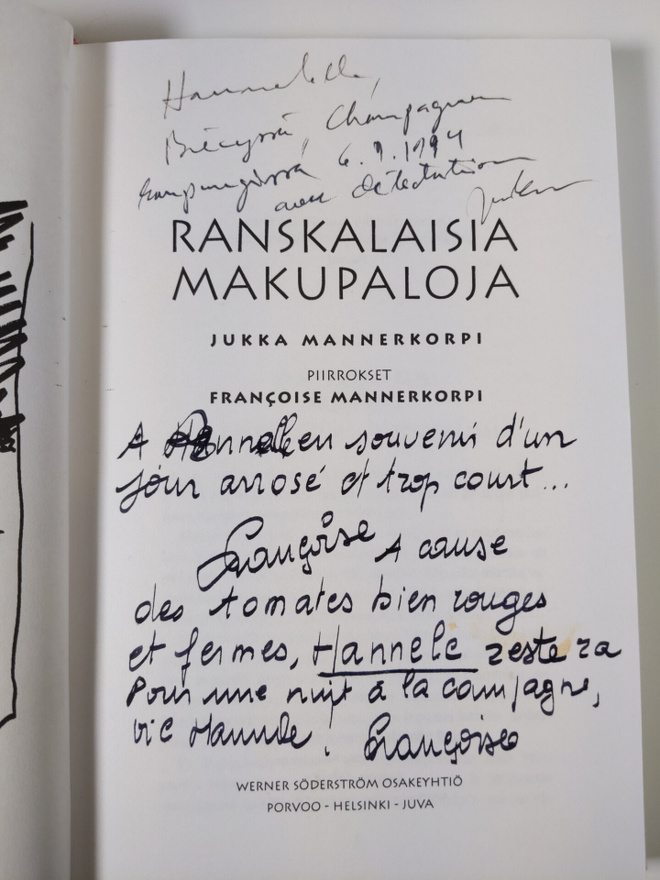 Hannelelle,
Champagnen
kaupungissa 6.9.1994
avec
Jukka
RANSKALAISIA
MAKUPALOJA
JUKKA MANNERKORPI
PIIRROKSET
FRANÇOISE MANNERKORPI
A Hannele en souvenir d'un
jour arrosé et trop court...
Françoise A cause
des tomates bien rouges
et fermes, Hannele restera
Pour une nuit à la campagne,
vic Hannele! Françoise
WERNER SÖDERSTRÖM OSAKEYHTIÖ
PORVOO - HELSINKI - JUVA